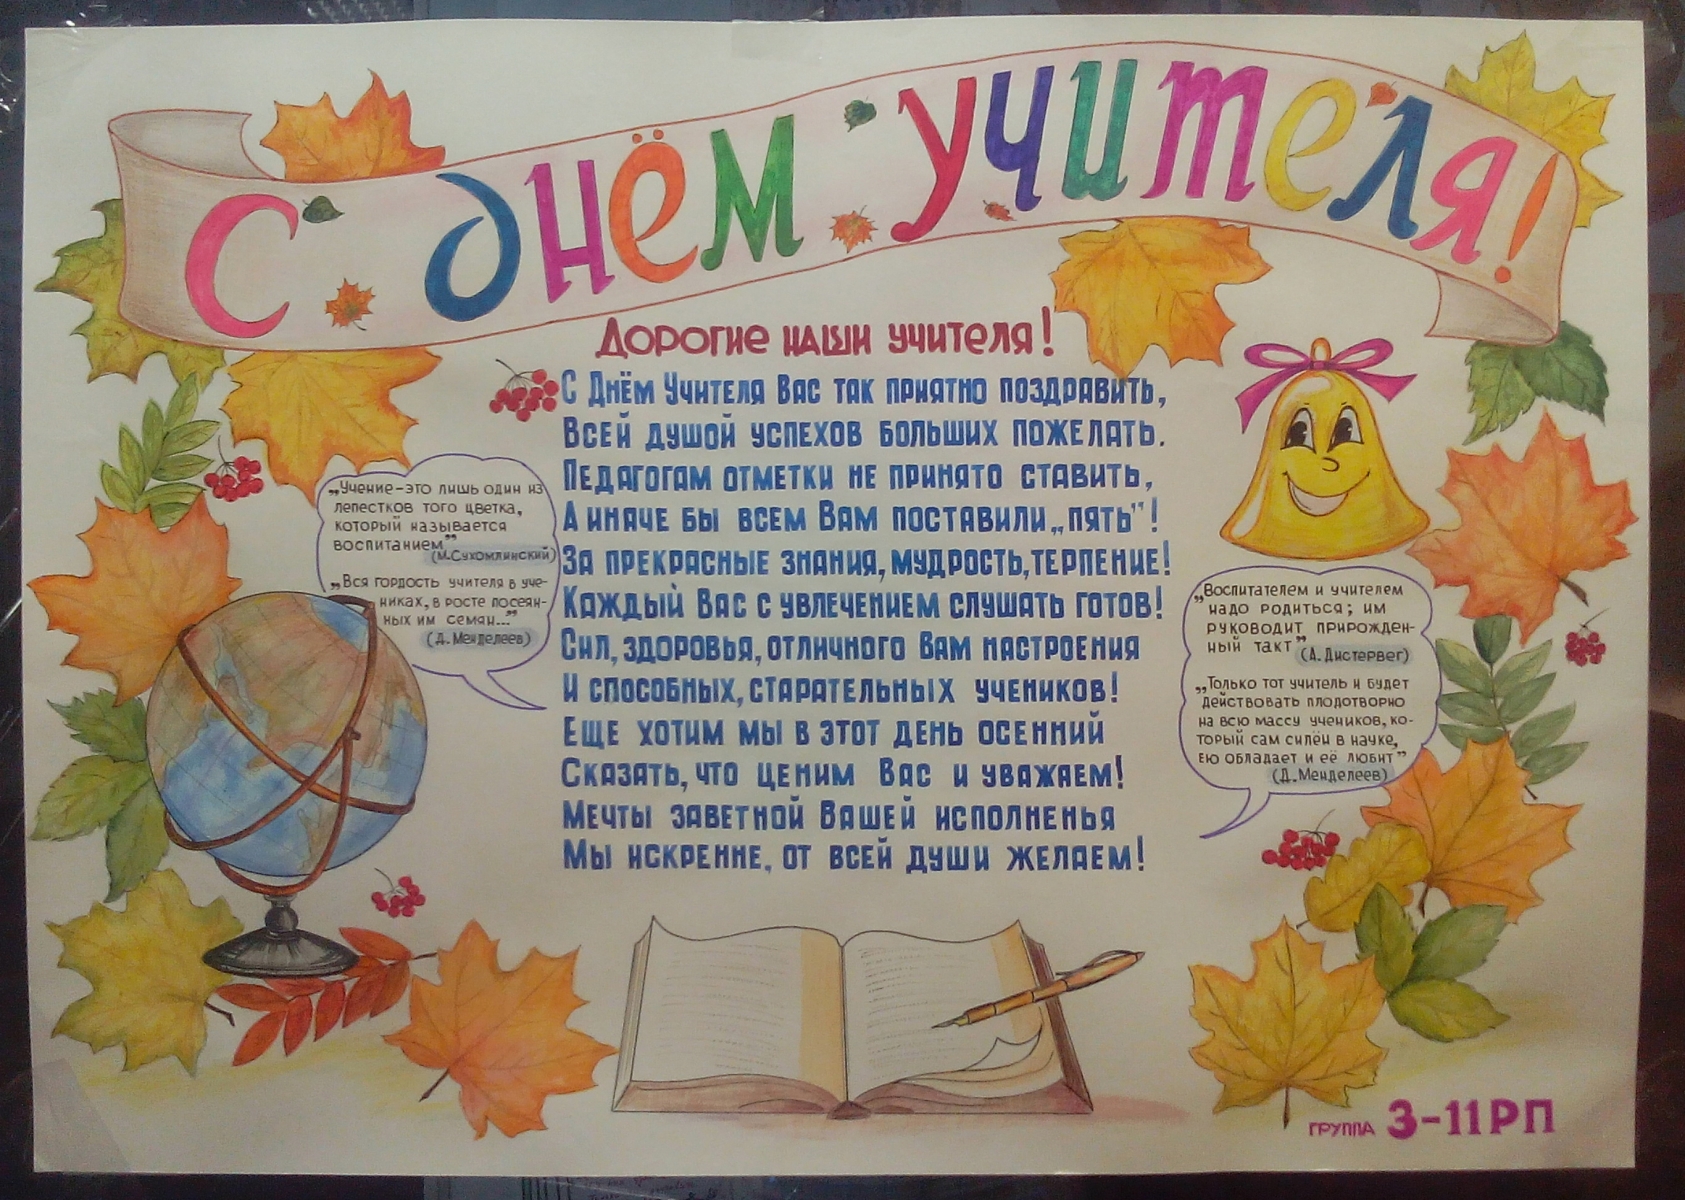 С днём учителя!
Дорогие наши учителя!
С Днём Учителя Вас так приятно поздравить,
Всей душой успехов больших пожелать.
Педагогам отметки не принято ставить,
А иначе бы всем Вам поставили „пять"!
За прекрасные знания, мудрость, терпение!
Каждый Вас с увлечением слушать готов!
Сил, здоровья, отличного Вам настроения
И способных, старательных учеников!
Еще хотим мы в этот день осенний
Сказать, что ценим Вас и уважаем!
Мечты заветной Вашей исполненья
Мы искренне, от всей души желаем!
„Учение-это лишь один из
лепестков того цветка,
который называется
воспитанием"
(М.Сухомлинский)
„Вся гордость учителя в уче-
никах, в росте посеян-
ных им семян..."
(Д. Менделеев)
„Воспитателем и учителем
надо родиться; им
руководит прирожден-
ный такт"
(А. Дистервег)
„Только тот учитель и будет
действовать плодотворно
на всю массу учеников, ко-
торый сам силён в науке,
ею обладает и её любит"
(Д.Менделеев)
группа 3-11РП